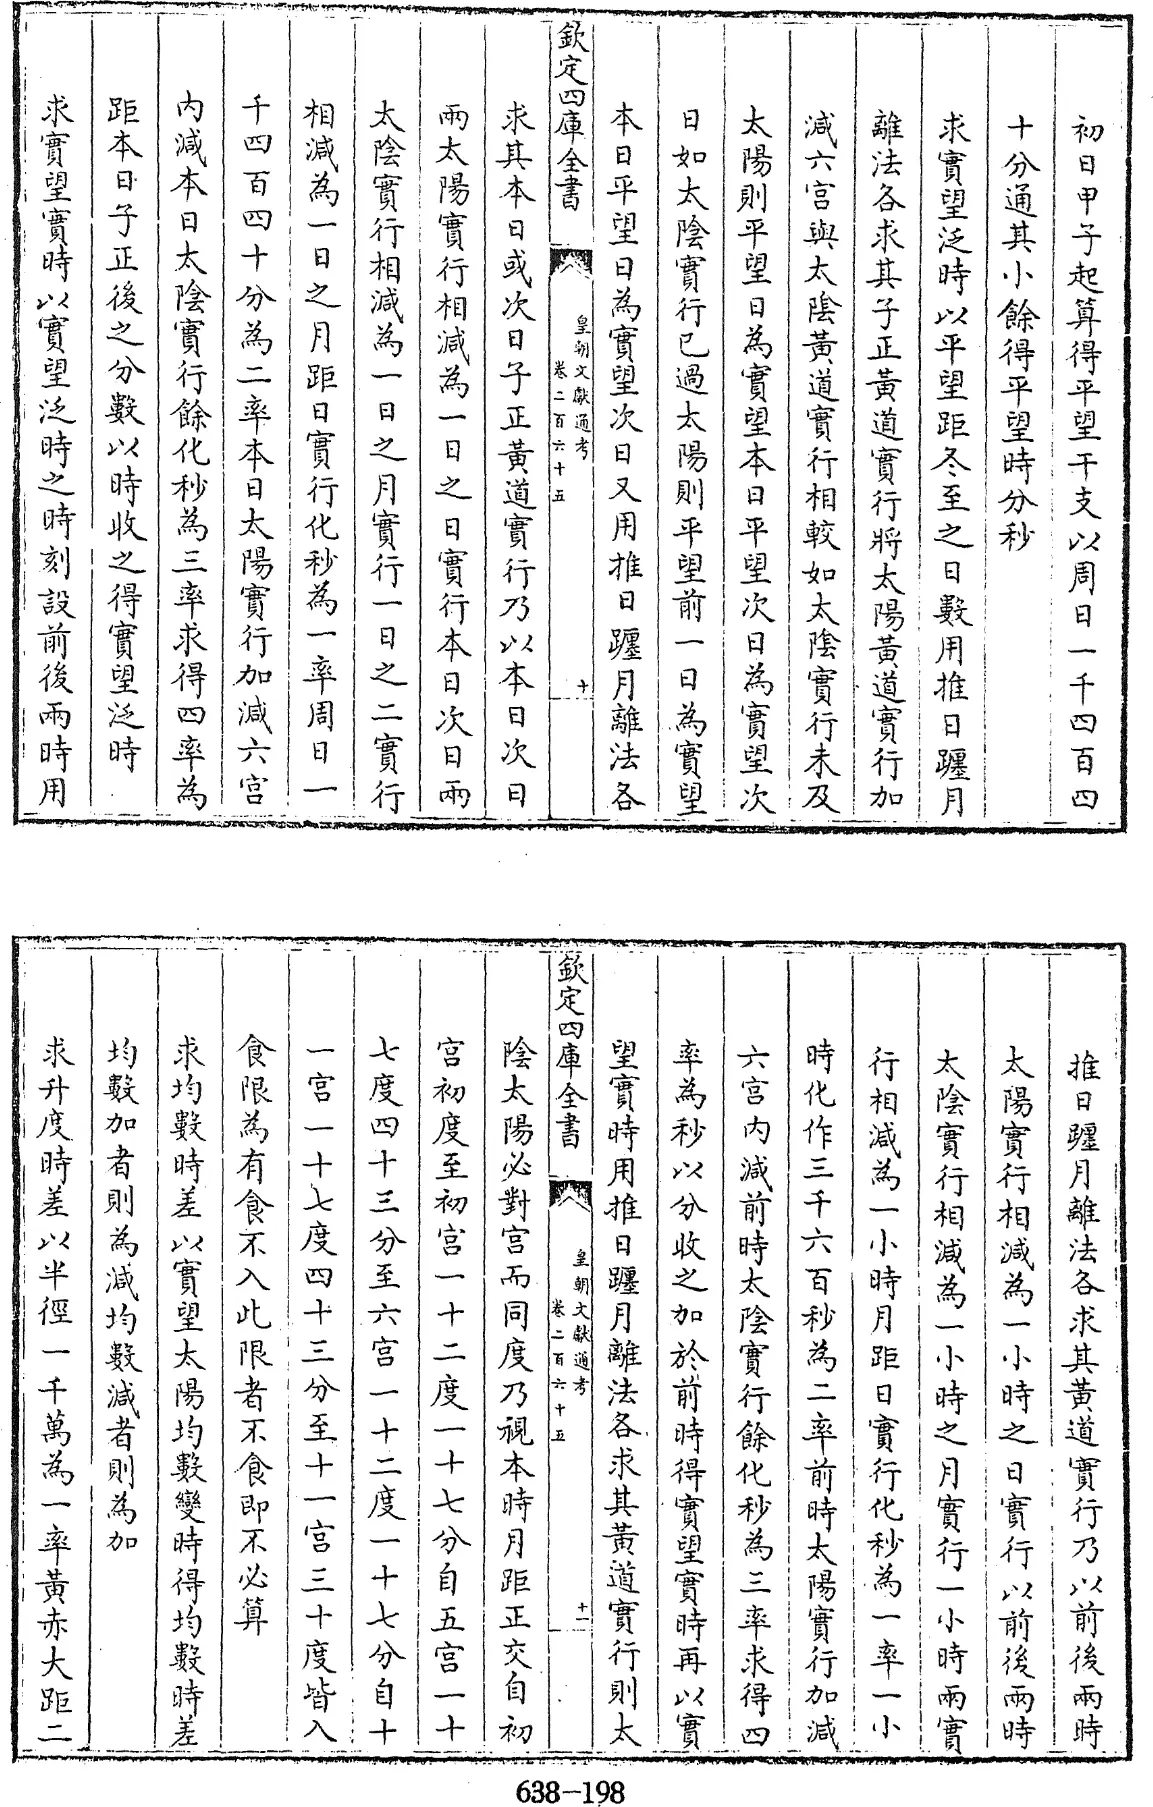 初日甲子起算得平望干支以周日一千四百四
十分通其小餘得平望時分秒
求實望泛時以平望距冬至之日數用推日躔月
離法各求其子正黃道實行將太陽黃道實行加
減六宮與太陰黃道實行相較如太陰實行未及
太陽則平望日為實望本日平望次日為實望次
日如太陰實行已過太陽則平望前一日為實望
本日平望日為實望次日又用推日躔月離法各
欽定四庫全書
皇朝文獻通考
卷二百六十五
十
求其本日或次日子正黃道實行乃以本日次日
兩太陽實行相減為一日之日實行本日次日兩
太陰實行相減為一日之月實行一日之二實行
相減為一日之月距日實行化秒為一率周日一
千四百四十分為二率本日太陽實行加減六宮
內減本日太陰實行餘化秒為三率求得四率為
距本日子正後之分數以時收之得實望泛時
求實望實時以實望泛時之時刻設前後兩時用
推日躔月離法各求其黃道實行乃以前後兩時
太陽實行相減為一小時之日實行以前後兩時
太陰實行相減為一小時之月實行一小時兩實
行相減為一小時月距日實行化秒為一率一小
時化作三千六百秒為二率前時太陽實行加減
六宮內減前時太陰實行餘化秒為三率求得四
率為秒以分收之加於前時得實望實時再以實
望實時用推日躔月離法各求其黃道實行則太
欽定四庫全書
皇朝文獻通考
卷二百六十五
十一
陰太陽必對宮而同度乃視本時月距正交自初
宮初度至初宮一十二度一十七分自五宮一十
七度四十三分至六宮一十二度一十七分自十
一宮一十七度四十三分至十一宮三十度皆入
食限為有食不入此限者不食即不必算
求均數時差以實望太陽均數變時得均數時差
均數加者則為減均數減者則為加
求升度時差以半徑一千萬為一率黃赤大距二
638-198